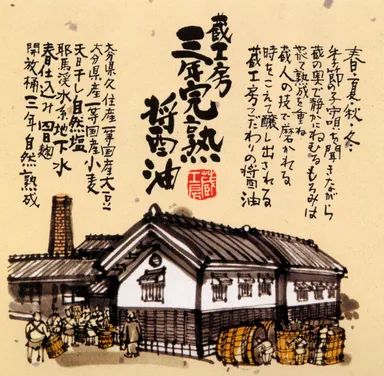 春・夏・秋・冬
季節の子守唄を聞きながら
蔵の奥で静かにねむるもろみは
発て熟成を重ね
蔵人の技で磨かれる
時をこえて醸し出される
蔵工房こだわりの醤油
蔵工房
三年完熟
醤油
蔵工房
大分県久住産一等国産大豆
大分県産一等国産小麦
天日干し自然塩
耶馬渓水系地下水
春仕込み四日麹
開放桶三年自然熟成